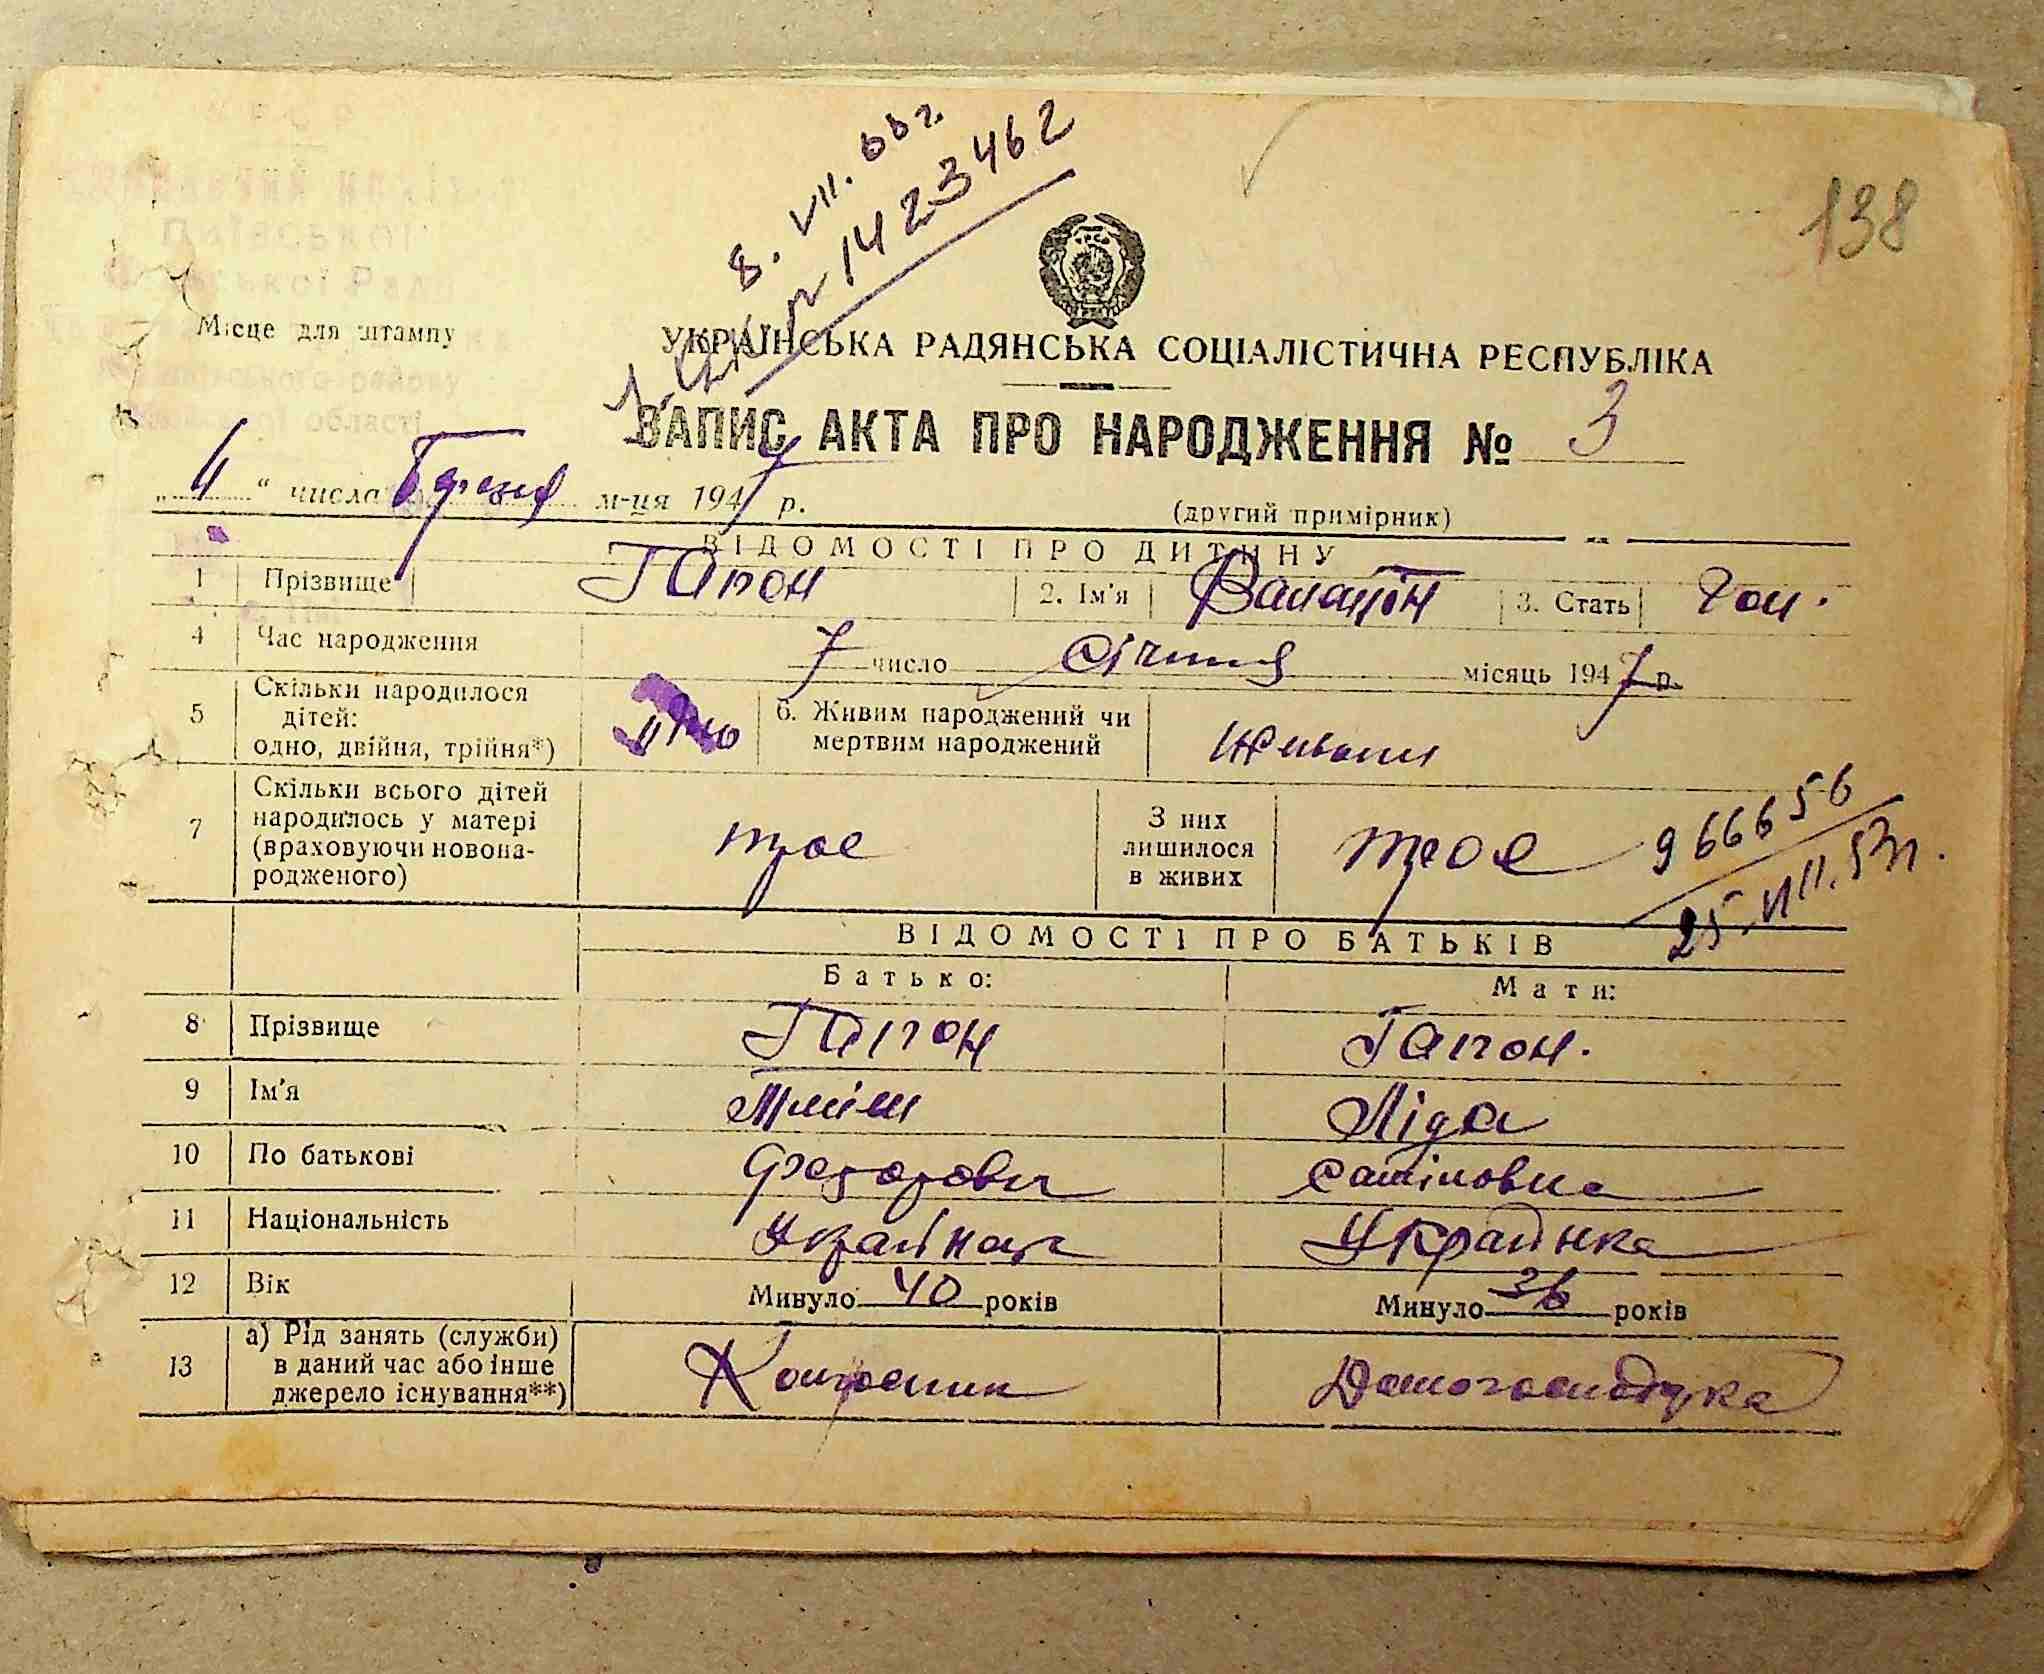 8. VII. 66 г.
1423462
138
Місце для штампу
УКРАЇНСЬКА РАДЯНСЬКА СОЦІАЛІСТИЧНА РЕСПУБЛІКА
ЗАПИС АКТА ПРО НАРОДЖЕННЯ № 3
„ 4 “ числа Березня м-ця 1947 р.
(другий примірник)
ВІДОМОСТІ ПРО ДИТИНУ
1 Прізвище Гапон 2. Ім'я Валентін 3. Стать Чол.
4 Час народження 7 число січня місяць 1947 р.
5 Скільки народилося дітей: одно, двійня, трійня*) 6. Живим народжений чи мертвим народжений Живим
7 Скільки всього дітей народилось у матері (враховуючи новонародженого) троє З них лишилося в живих троє
966656
25.VIII.53 р.
ВІДОМОСТІ ПРО БАТЬКІВ
Батько: Мати:
8 Прізвище Гапон Гапон.
9 Ім'я Ліда
10 По батькові Федорович
11 Національність Українец Українка
12 Вік Минуло 40 років Минуло 36 років
13 а) Рід занять (служби) в даний час або інше джерело існування**) Колгоспник Домогосподарка